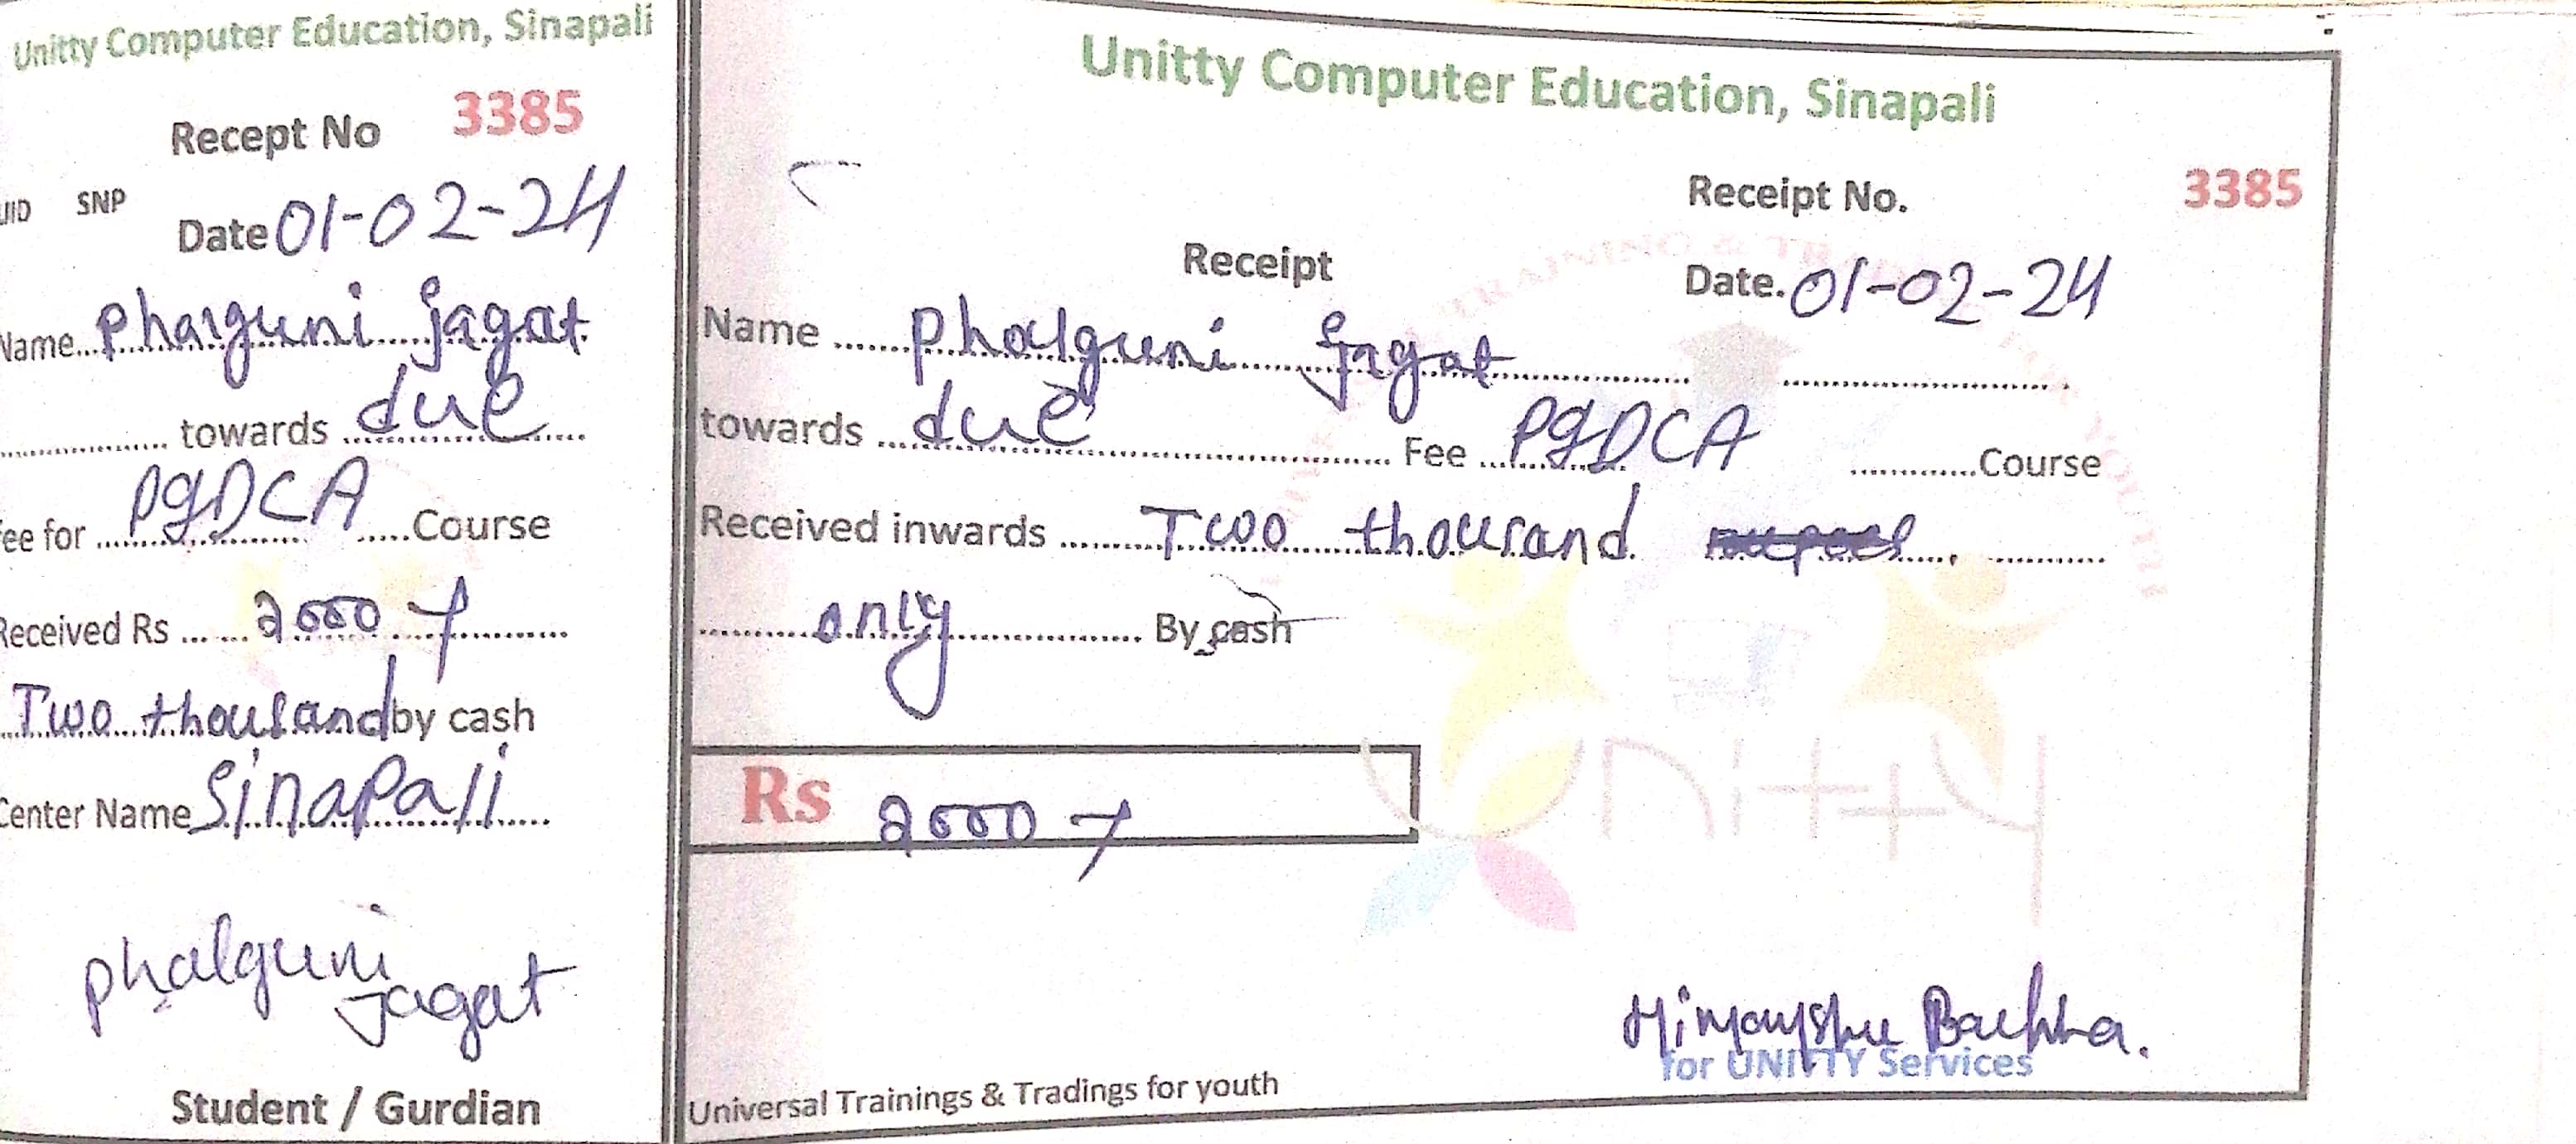 Unitty Computer Education, Sinapali
Recept No 3385
UID SNP
Date 01-02-24
Name phalguni jagat
towards due
Fee for PGDCA Course
Received Rs 2000/-
Two thousand by cash
Center Name Sinapali
phalguni
jagat
Student / Gurdian
Unitty Computer Education, Sinapali
Receipt No. 3385
Receipt
Date. 01-02-24
Name phalguni jagat
towards due Fee PGDCA Course
Received inwards Two thousand
only By cash
Rs 2000/-
Himanshu
for UNITTY Services
Universal Trainings & Tradings for youth